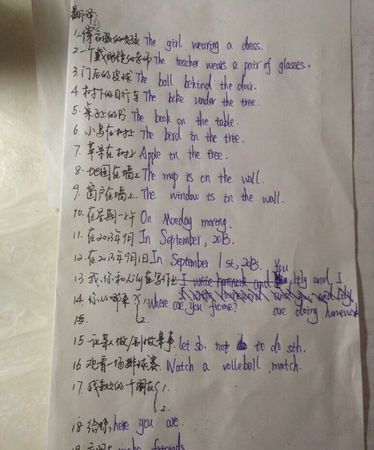 翻译:
1. 穿衣服的女孩 The girl wearing a dress.
2. 一个戴眼镜的老师 The teacher wears a pair of glasses.
3. 门后的皮球 The ball behind the door.
4. 树下的自行车 The bike under the tree.
5. 桌上的书 The book on the table.
6. 小鸟在树上 The bird in the tree.
7. 苹果在树上 Apple in the tree.
8. 地图在墙上 The map is on the wall.
9. 窗户在墙上 The window is in the wall.
10. 在星期一上午 On Monday moring.
11. 在2013年9月 In September, 2013.
12. 在2013年9月1日 In September 1st, 2013.
13. 我,你和 在写作业 I write homework and You, and I
14. 你从哪来? { where are you frome? are doing homework
2.
15. 让某人做/别做某事 let sb. not to do sth.
16. 观看一场排球赛 Watch a volleball match.
17. 我 的一个朋友 { 1.
2.
18. 给你, here you are.
friends